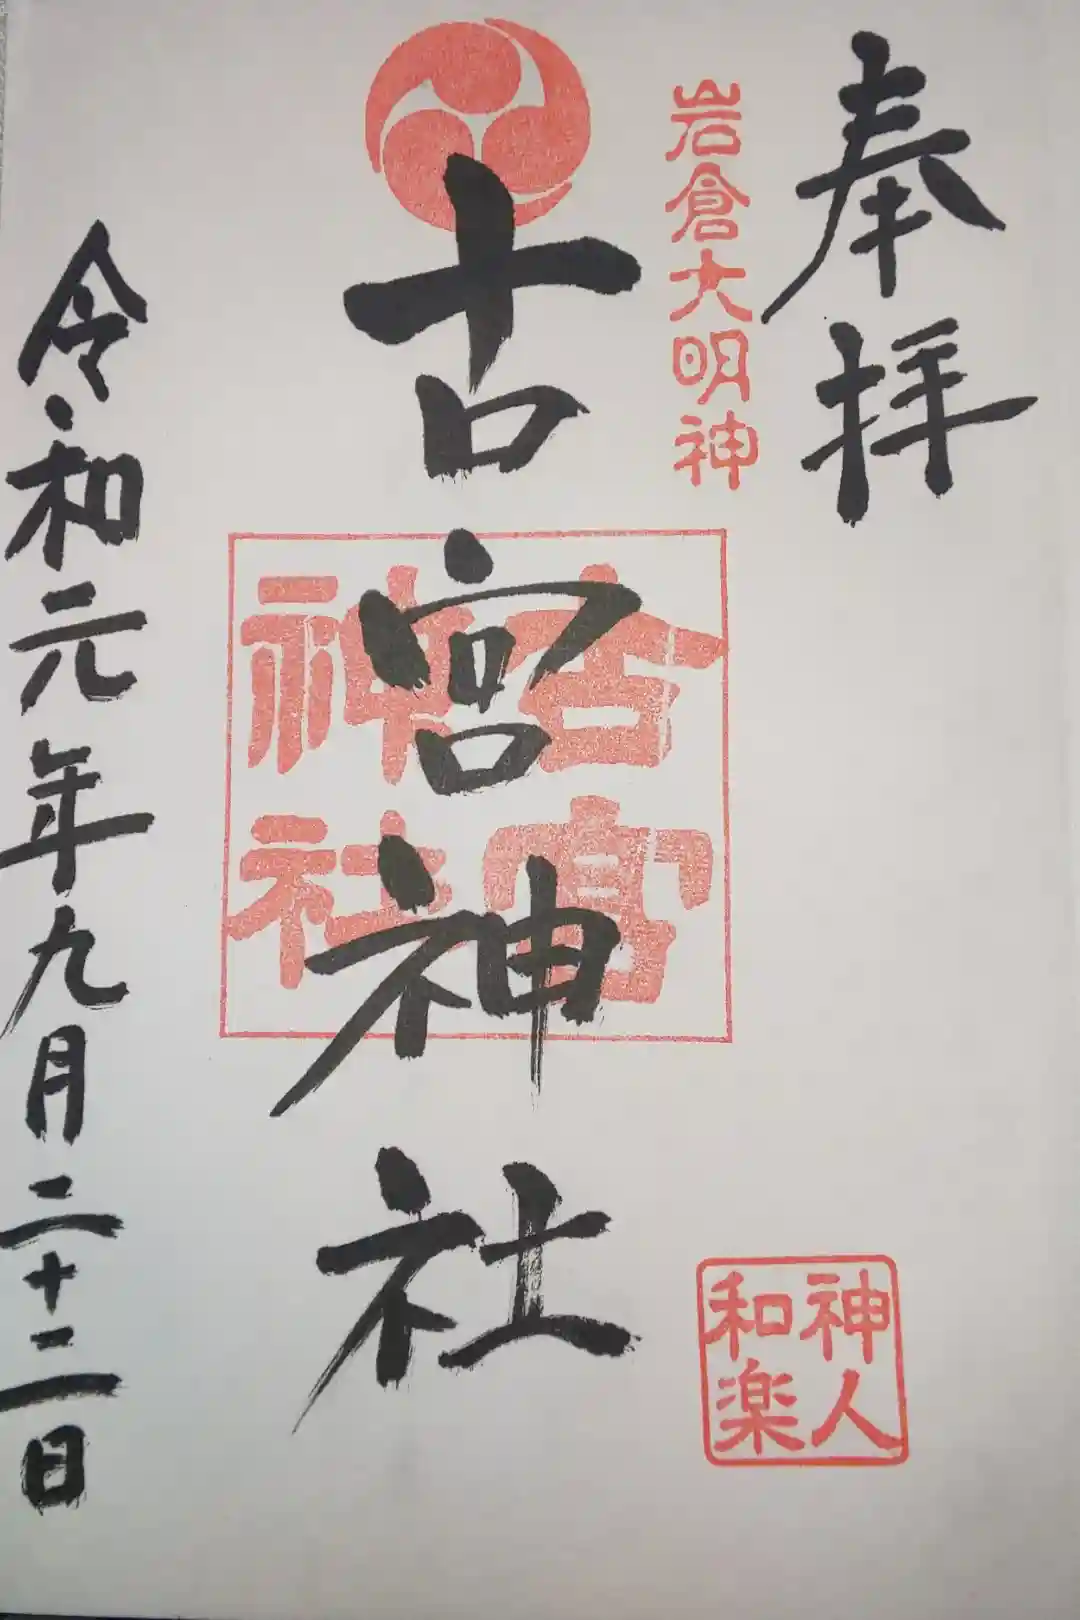 奉拝
岩倉大明神
神人
和楽
古宮神社
古宮
神社
令和元年九月二十二日